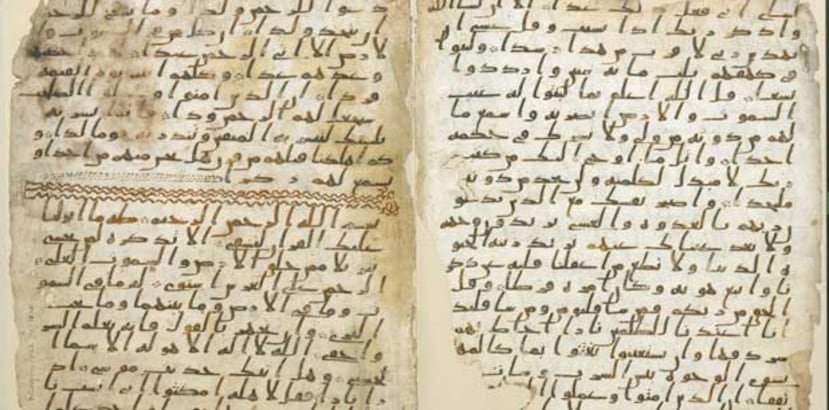 انى فعل ذلك غدا الا ان يشا الله
واذكر ربك اذا نسيت وقل عسى ا
ن يهدين ربى لاقرب من هذا رشدا ولبثوا
فى كهفهم ثلث مائه سنين وازدادوا
تسعا قل الله اعلم بما لبثوا له غيب
السموت والارض ابصر به واسمع ما
لهم من دونه من ولى ولا يشرك فى حكمه
احدا واتل ما اوحى اليك من كتب
ربك لا مبدل لكلمته ولن تجد من دونه
ملتحدا واصبر نفسك مع الذين يدعو
ن ربهم بالغدوه والعشى يريدون وجهه
ولا تعد عينك عنهم تريد زينه الحيو
ه الدنيا ولا تطع من اغفلنا قلبه عن ذكر
نا واتبع هويه وكان امره فرطا وقل
الحق من ربكم فمن شا فليومن ومن شا فليكفر
انا اعتدنا للظلمين نارا احاط بهم
سردقها وان يستغيثوا يغثوا بما كالمهل
يشوى الوجوه بئس الشرب وسات مر
تفقا ان الذين امنوا وعملوا ا
دعوا للرحمن ولدا وما ينبغى للرحمن
ان يتخذ ولدا ان كل من فى السموت و
الارض الا اتى الرحمن عبدا لقد احصيهم
وعدهم عدا وكلهم اتيه يوم القيمه
فردا ان الذين امنوا وعملوا الصلحت
سيجعل لهم الرحمن ودا فانما يسرنه
بلسنك لتبشر به المتقين وتنذر به قوما لدا و
كم اهلكنا قبلهم من قرن هل تحس منهم من احد او
تسمع لهم ركزا
بسم الله الرحمن الرحيم طه ما انزلنا
عليك القران لتشقى الا تذكره لمن يخشى
تنزيلا ممن خلق الارض والسموت العلى
الرحمن على العرش استوى له ما فى السمو
ت وما فى الارض وما بينهما وما تحت
الثرى وان تجهر بالقول فانه يعلم السر
واخفى الله لا اله الا هو له الاسما ا
لحسنى وهل اتيك حديث موسى اذ
را نارا فقال لاهله امكثوا انى انست نا